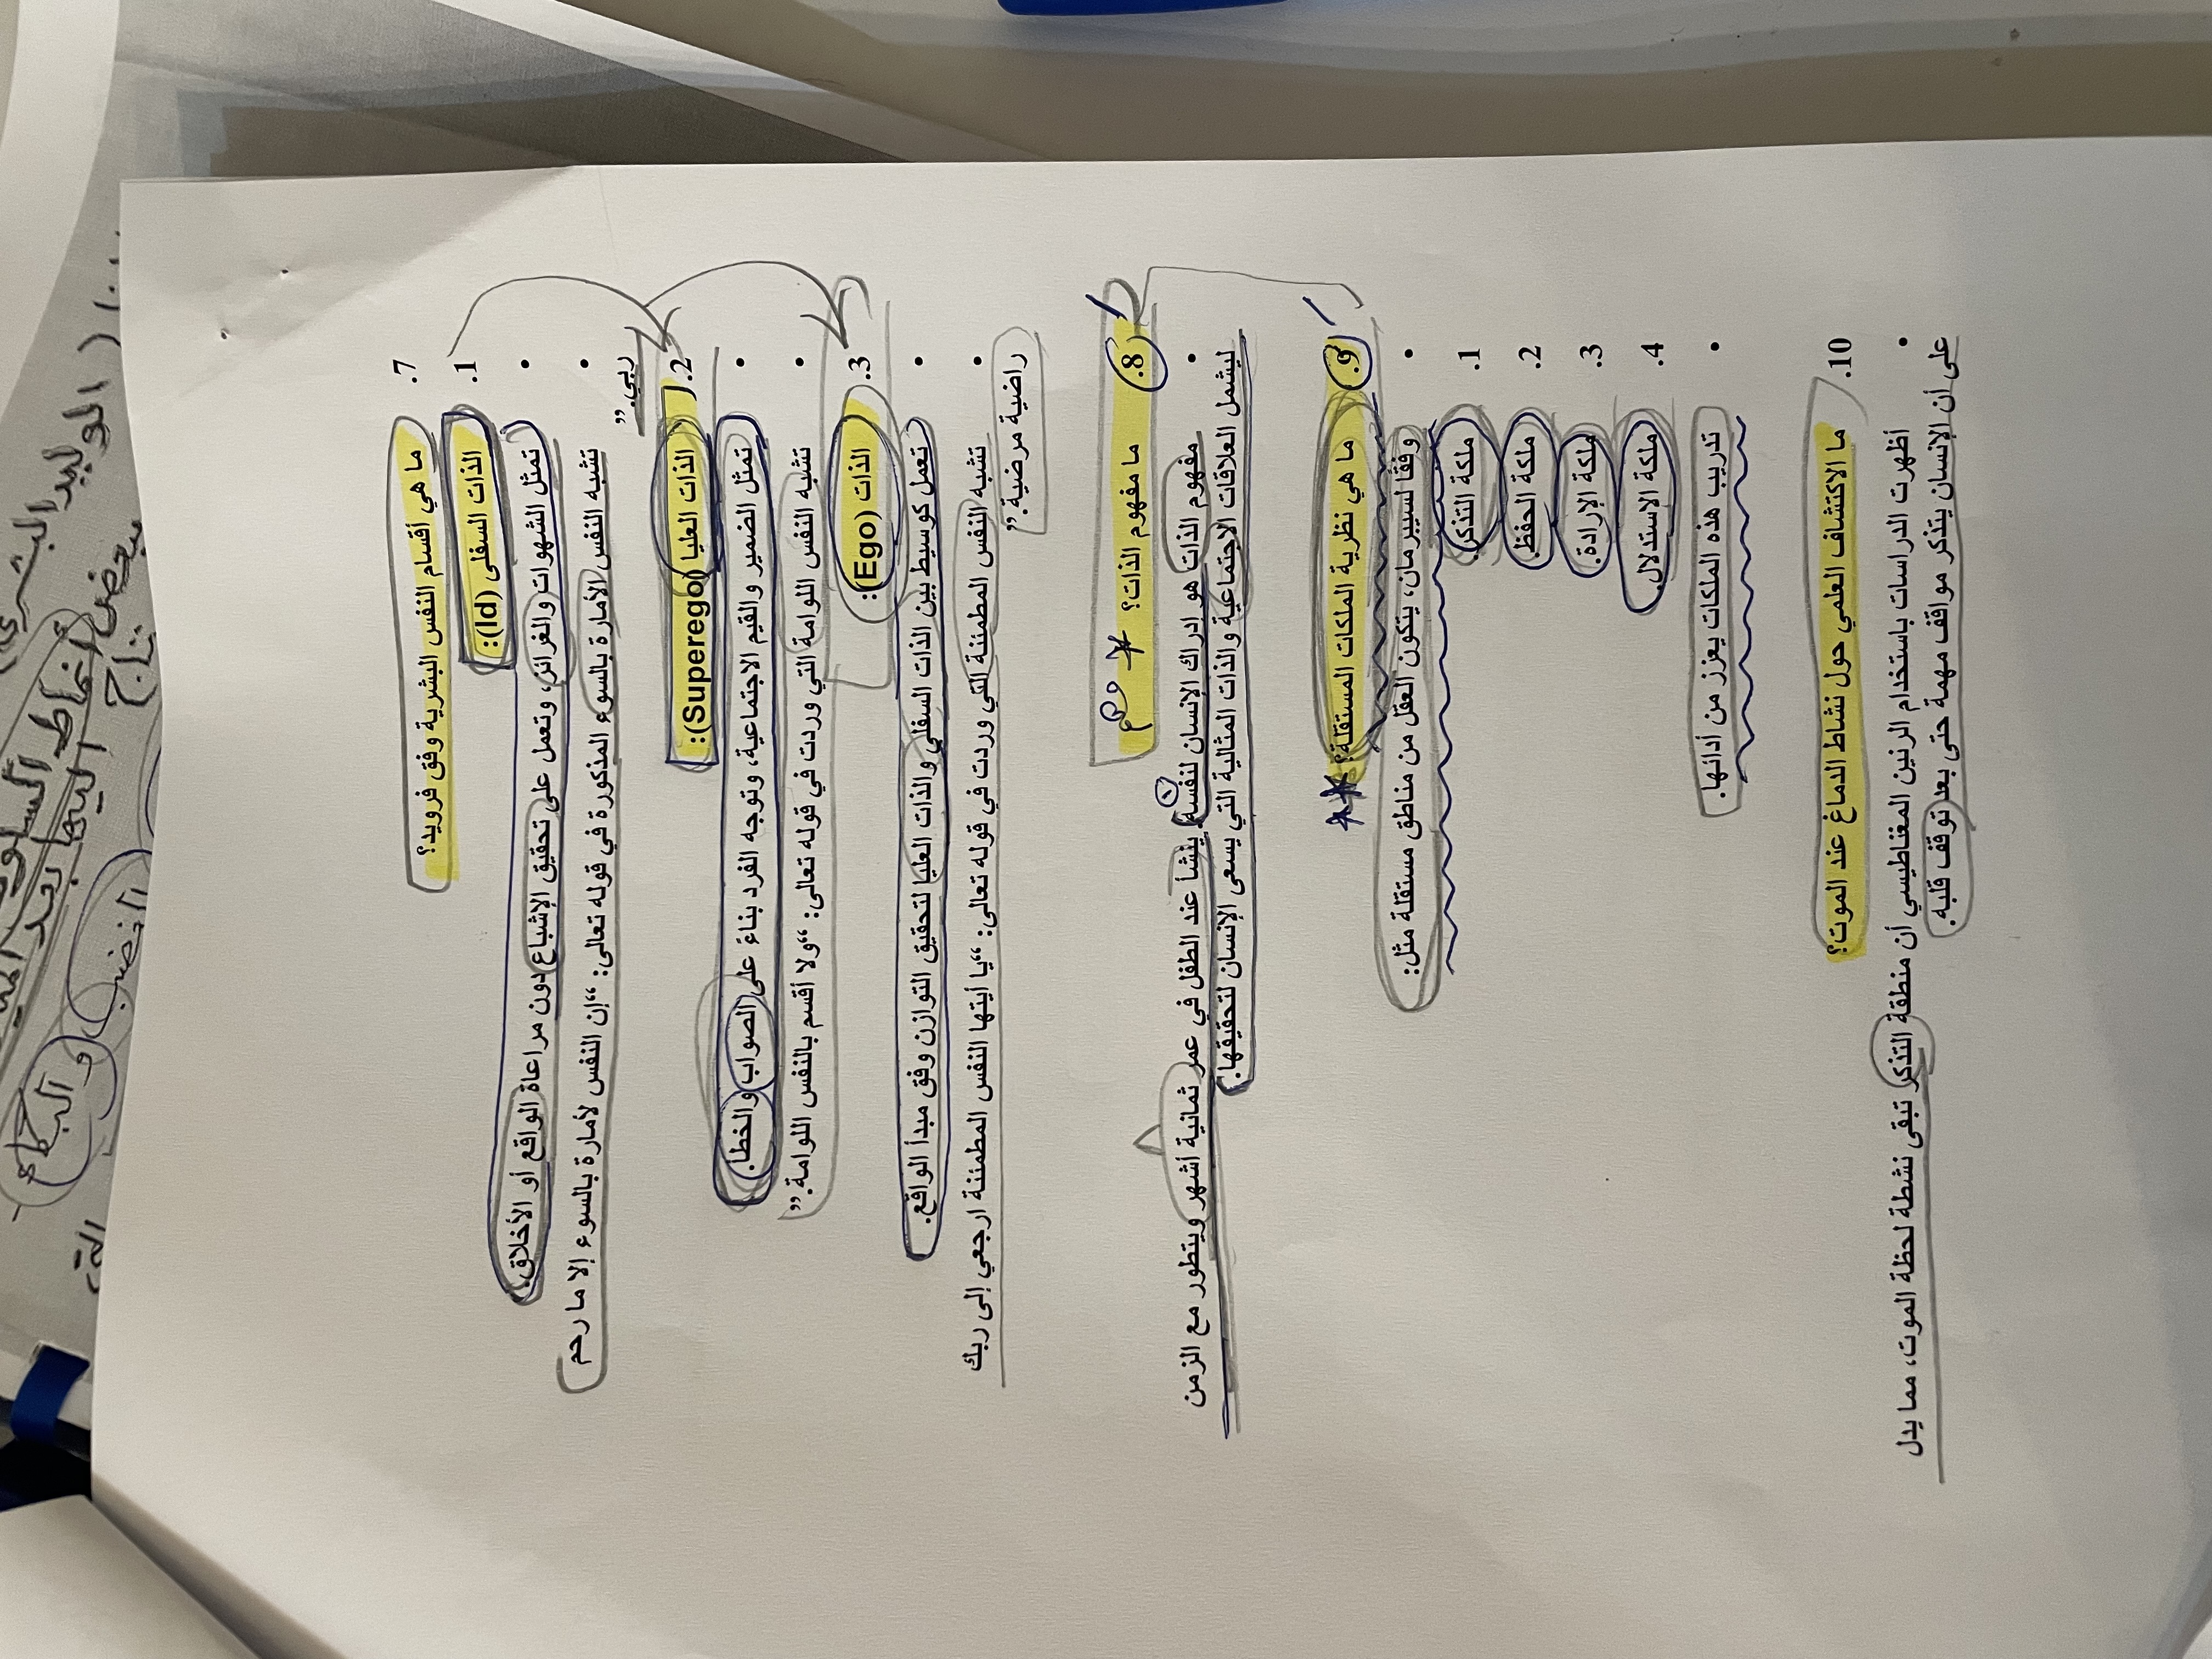 الوليد البشري
بعض أنماط السلو
تاج اليها بعد
الغضب والبكاء
التي
7. ما هي أقسام النفس البشرية وفق فرويد؟
1. الذات السفلى (Id):
• تمثل الشهوات والغرائز، وتعمل على تحقيق الإشباع دون مراعاة الواقع أو الأخلاق.
• تشبه النفس الأمارة بالسوء المذكورة في قوله تعالى: “إن النفس لأمارة بالسوء إلا ما رحم
ربي.”
2. الذات العليا (Superego):
• تمثل الضمير والقيم الاجتماعية، وتوجه الفرد بناءً على الصواب والخطأ.
• تشبه النفس اللوامة التي وردت في قوله تعالى: “ولا أقسم بالنفس اللوامة.”
3. الذات (Ego):
• تعمل كوسيط بين الذات السفلى والذات العليا لتحقيق التوازن وفق مبدأ الواقع.
• تشبه النفس المطمئنة التي وردت في قوله تعالى: “يا أيتها النفس المطمئنة ارجعي إلى ربك
راضية مرضية.”
8. ما مفهوم الذات؟ مهم
• مفهوم الذات هو إدراك الإنسان لنفسه. ينشأ عند الطفل في عمر ثمانية أشهر ويتطور مع الزمن
ليشمل العلاقات الاجتماعية والذات المثالية التي يسعى الإنسان لتحقيقها.
9. ما هي نظرية الملكات المستقلة؟
• وفقًا لسيبرمان، يتكون العقل من مناطق مستقلة مثل:
1. ملكة التذكر.
2. ملكة الحفظ.
3. ملكة الإرادة.
4. ملكة الاستدلال.
• تدريب هذه الملكات يعزز من أدائها.
10. ما الاكتشاف العلمي حول نشاط الدماغ عند الموت؟
• أظهرت الدراسات باستخدام الرنين المغناطيسي أن منطقة التذكر تبقى نشطة لحظة الموت، مما يدل
على أن الإنسان يتذكر مواقف مهمة حتى بعد توقف قلبه.